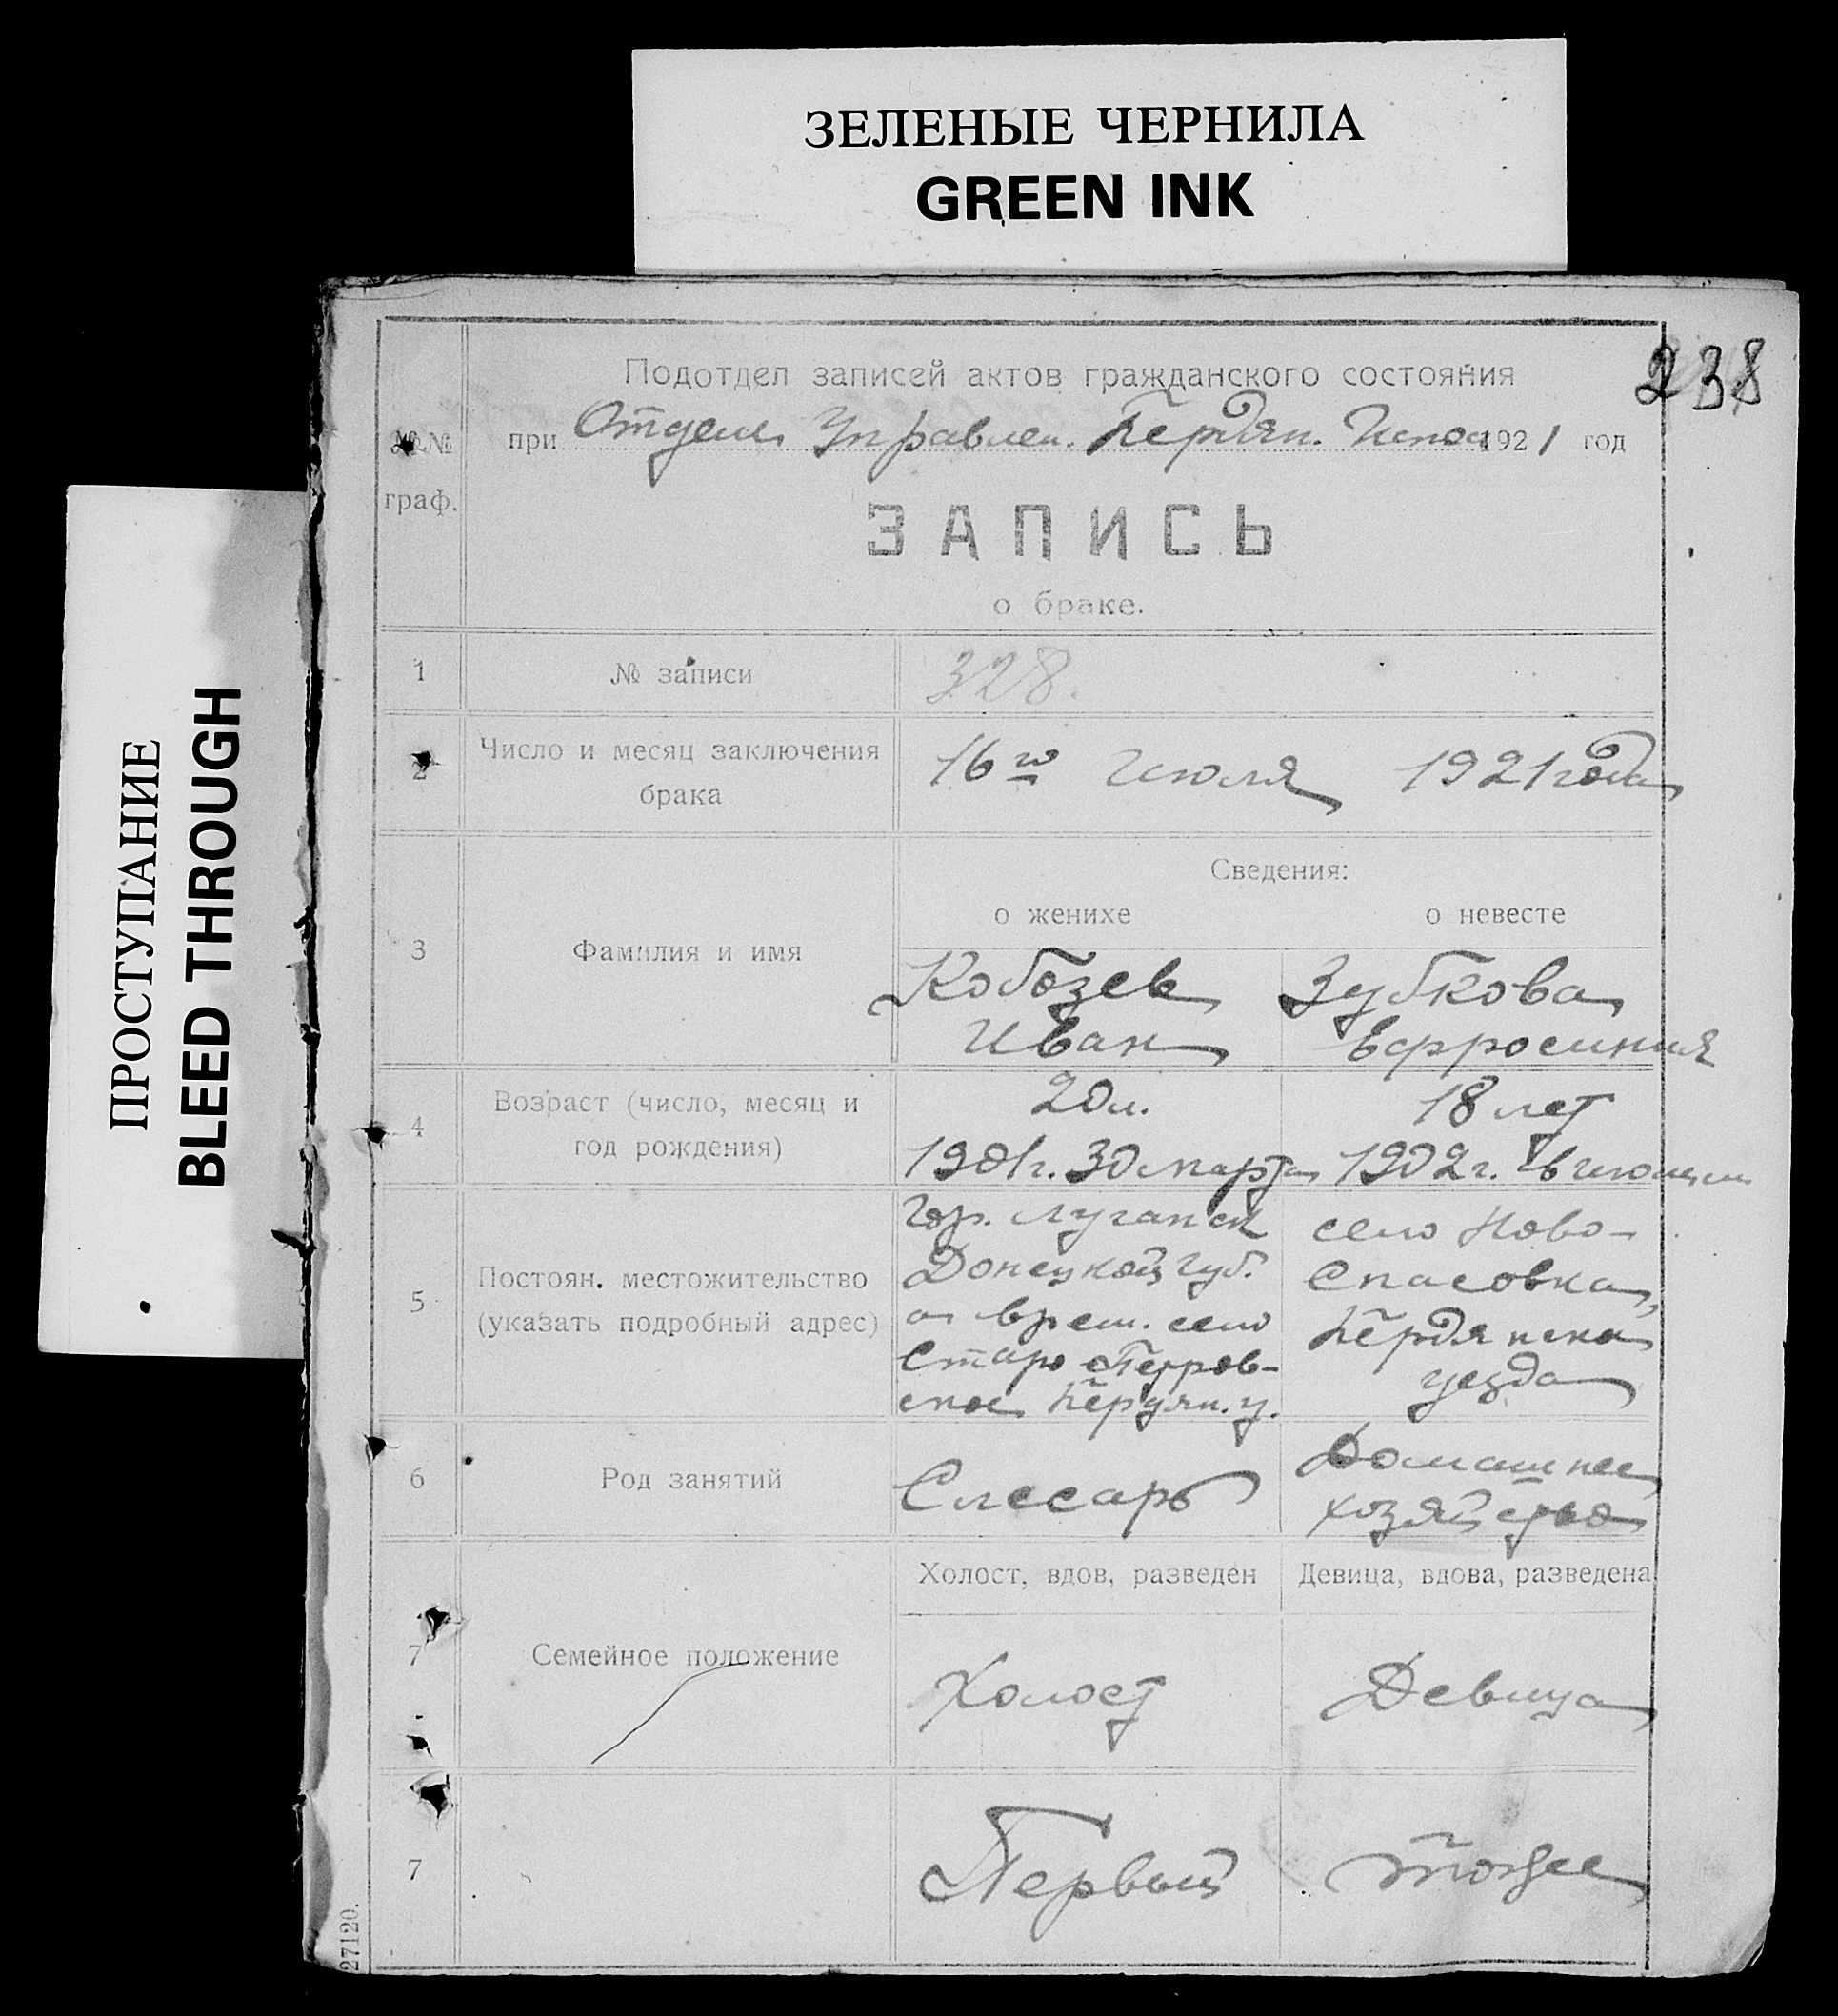 ЗЕЛЕНЫЕ ЧЕРНИЛА
GREEN INK
ПРОСТУПАНИЕ
BLEED THROUGH
238
№№
граф.
Подотдел записей актов гражданского состояния
при Отделе Управлен. Бердян. 1921 год
ЗАПИСЬ
о браке.
1
№ записи
328.
2
Число и месяц заключения
брака
16го Июля 1921 года
3
Фамилия и имя
Сведения:
о женихе
о невесте
Кобозев
Иван
Зубкова
Ефросиния
4
Возраст (число, месяц и
год рождения)
20 л.
1901 г. 30 марта
18 лет
1902 г. в июле
5
Постоян. местожительство
(указать подробный адрес)
Гор. Луганск
Донецкой губ.
а врем. село
Старо Петров-
ское Бердян. у.
село Ново-
Спасовка,
Бердянска
уезда
6
Род занятий
Слесарь
Домашнее
хозяйство
7
Семейное положение
Холост, вдов, разведен
Девица, вдова, разведена
Холост
Девица
7
Первый
тоже
27120.